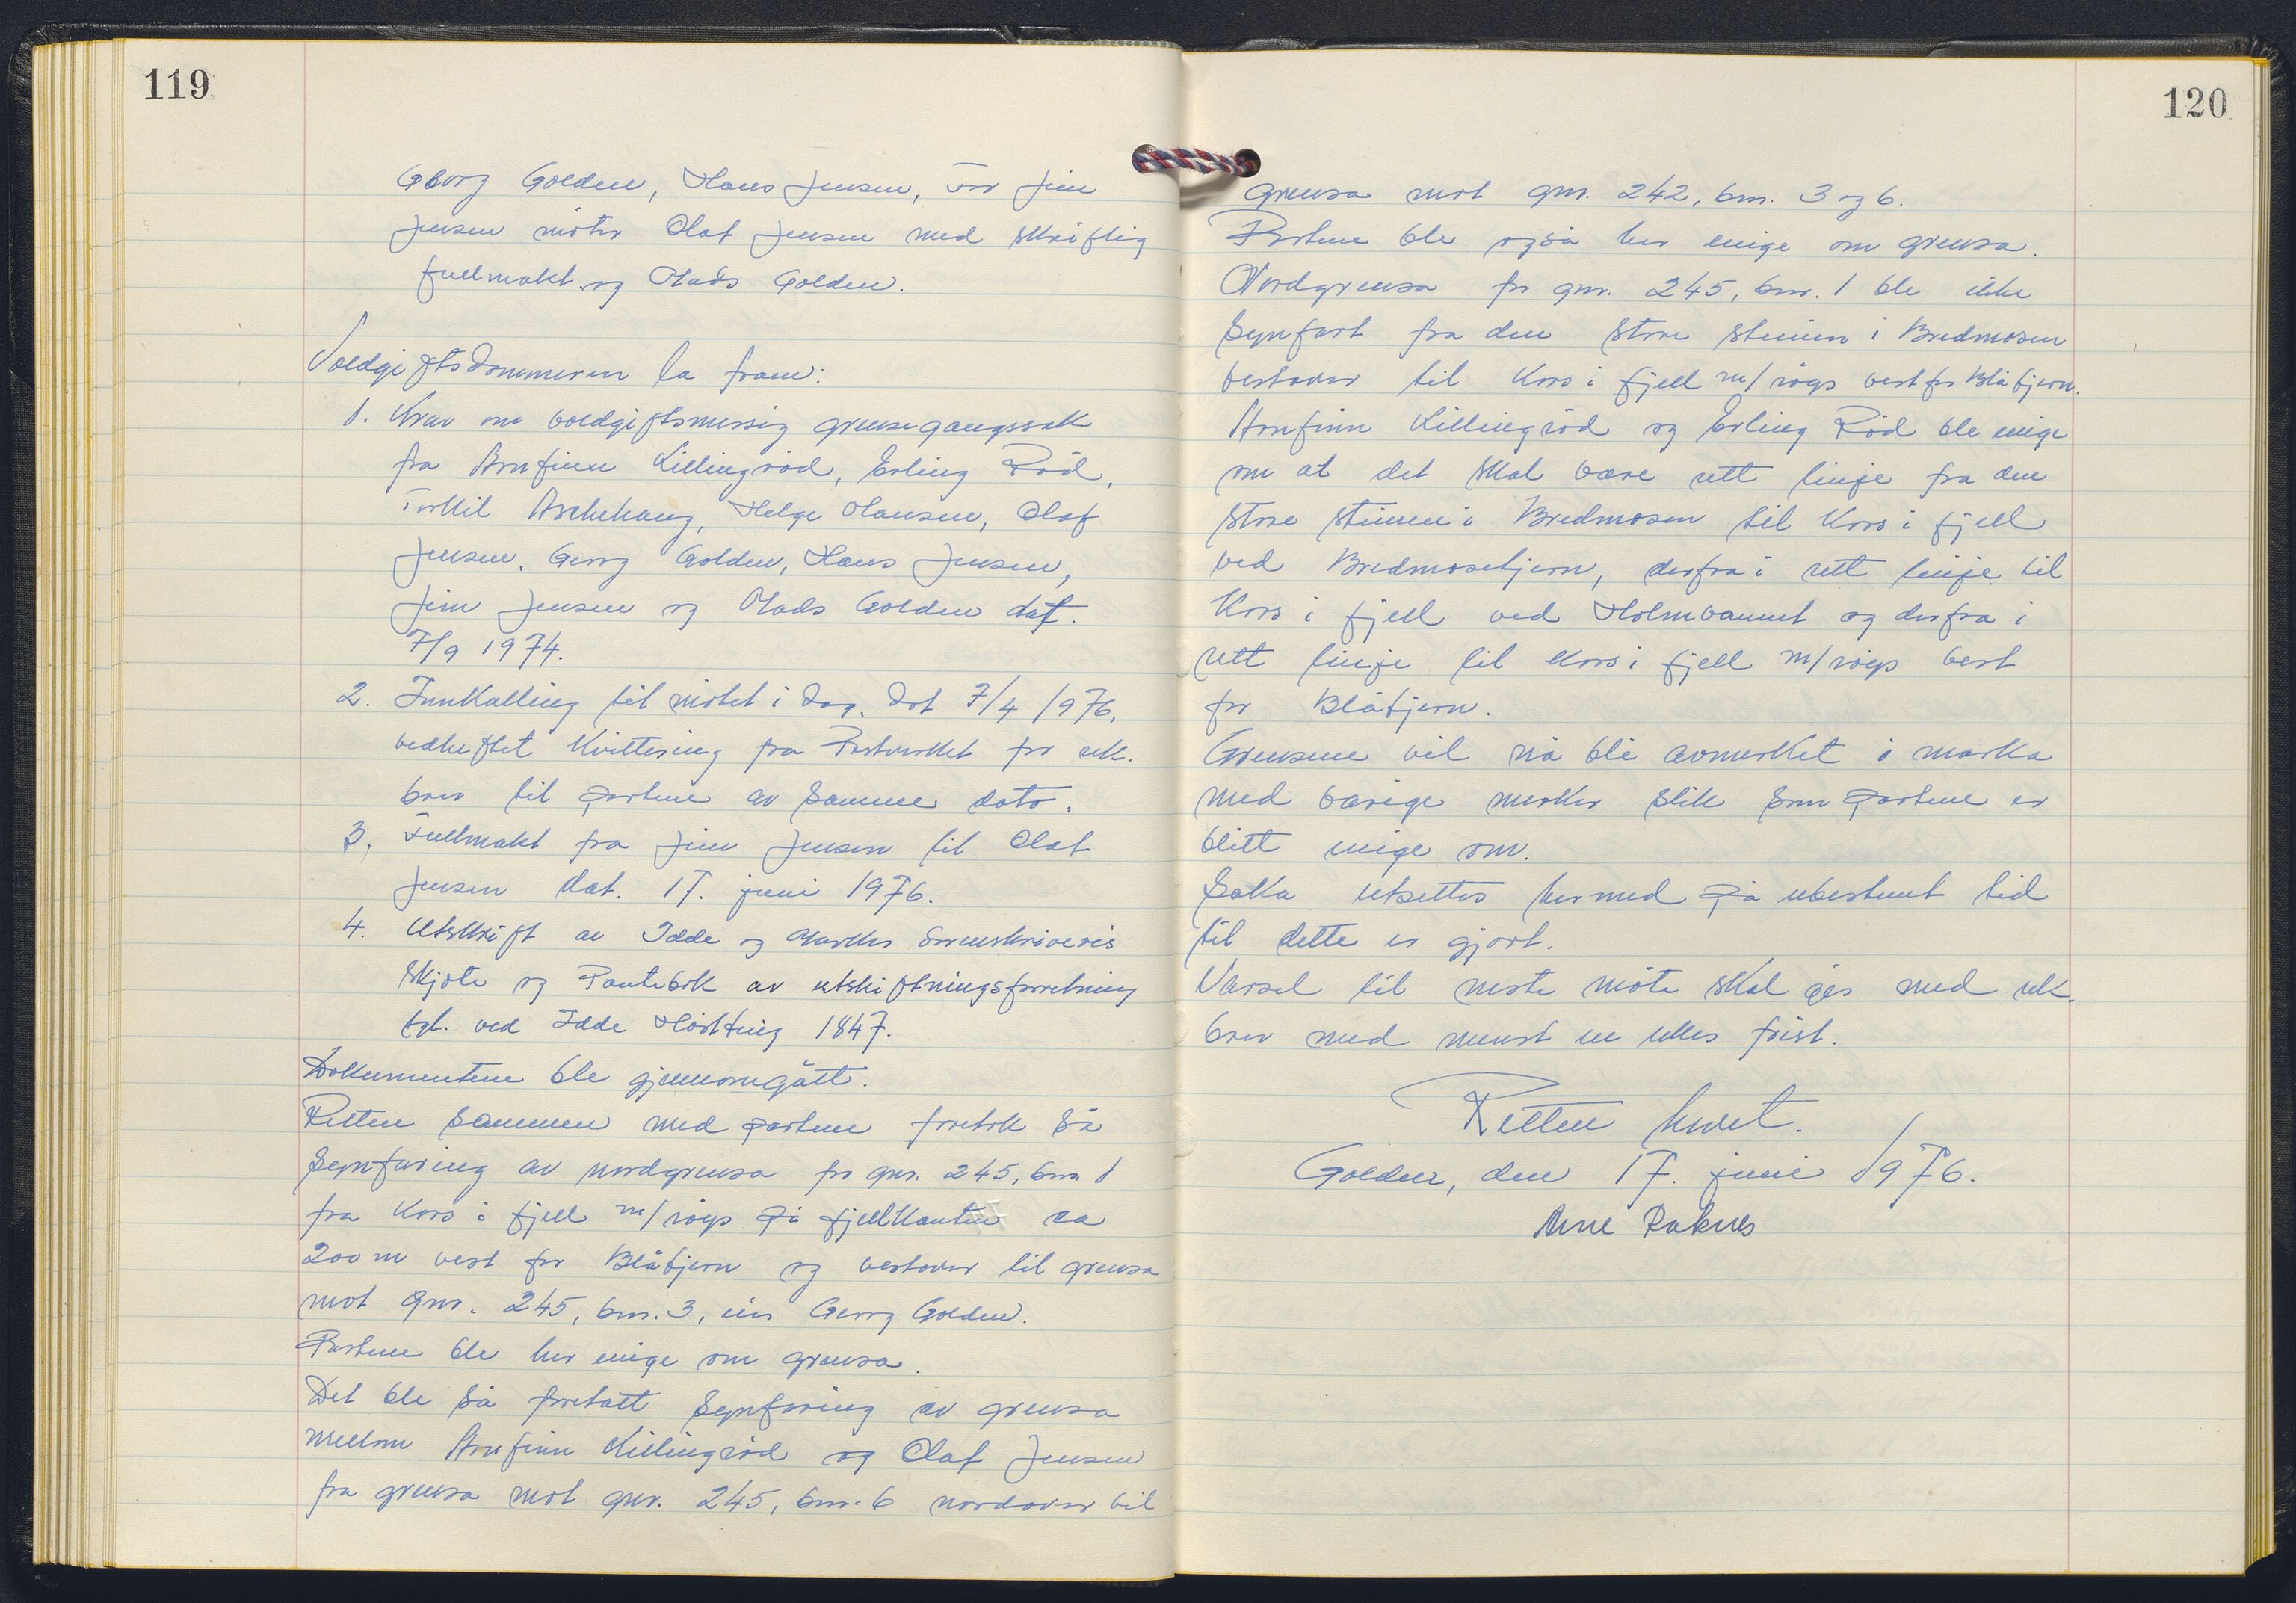 119
Georg Golden, Hans Jensen, For Jim
Jensen møter Olaf Jensen med skriftlig
fullmakt. og Mads Golden.
Voldgiftsdommeren la fram:
1. Krav om voldgiftsmessig grensegangssak
fra Arnfinn Killingrød, Erling Rød,
Torkil Aschehaug, Helge Hansen, Olaf
Jensen, Georg Golden, Hans Jensen,
Jim Jensen og Mads Golden dat.
7/9 1974.
2. Innkalling til møtet i dag. Dat 7/4 1976,
vedheftet kvittering fra Postverket for rek.
brev til partene av samme dato.
3. Fullmakt fra Jim Jensen til Olaf
Jensen dat. 17. juni 1976.
4. Utskrift av Idde og Marker Sorenskriveris
Skjøte og Pantebok av utskiftningsforretning
tgl. ved Idde Høstting 1847.
Dokumentene ble gjennomgått.
Retten sammen med partene foretok så
synfaring av nordgrensa for gnr. 245, bnr 1
fra kors i fjell m/røys på fjellkanten ca
200 m vest for Blåtjern og vestover til grensa
mot gnr. 245, bnr. 3, eier Georg Golden.
Partene ble her enige om grensa.
Det ble så foretatt synfaring av grensa
mellom Arnfinn Killingrød og Olaf Jensen
fra grensa mot gnr. 245, bnr. 6 nordover til
120
grensa mot gnr. 242, bnr. 3 og 6.
Partene ble også her enige om grensa.
Nordgrensa for gnr. 245, bnr. 1 ble ikke
synfart fra den store steinen i Bredmosen
vestover til kors i fjell m/røys vest for Blåtjern.
Arnfinn Killingrød og Erling Rød ble enige
om at det skal være rett linje fra den
store steinen i Bredmosen til kors i fjell
ved Bredmosetjern, derfra i rett linje til
kors i fjell ved Holmvannet og derfra i
rett linje til kors i fjell m/røys vest
for Blåtjern.
Grensene vil nå bli avmerket i marka
med varige merker slik som partene er
blitt enige om.
Saka utsettes hermed på ubestemt tid
til dette er gjort.
Varsel til neste møte skal gis med rek.
brev med minst en ukes frist.
Retten hevet.
Golden, den 17. juni 1976.
Arne Raknes